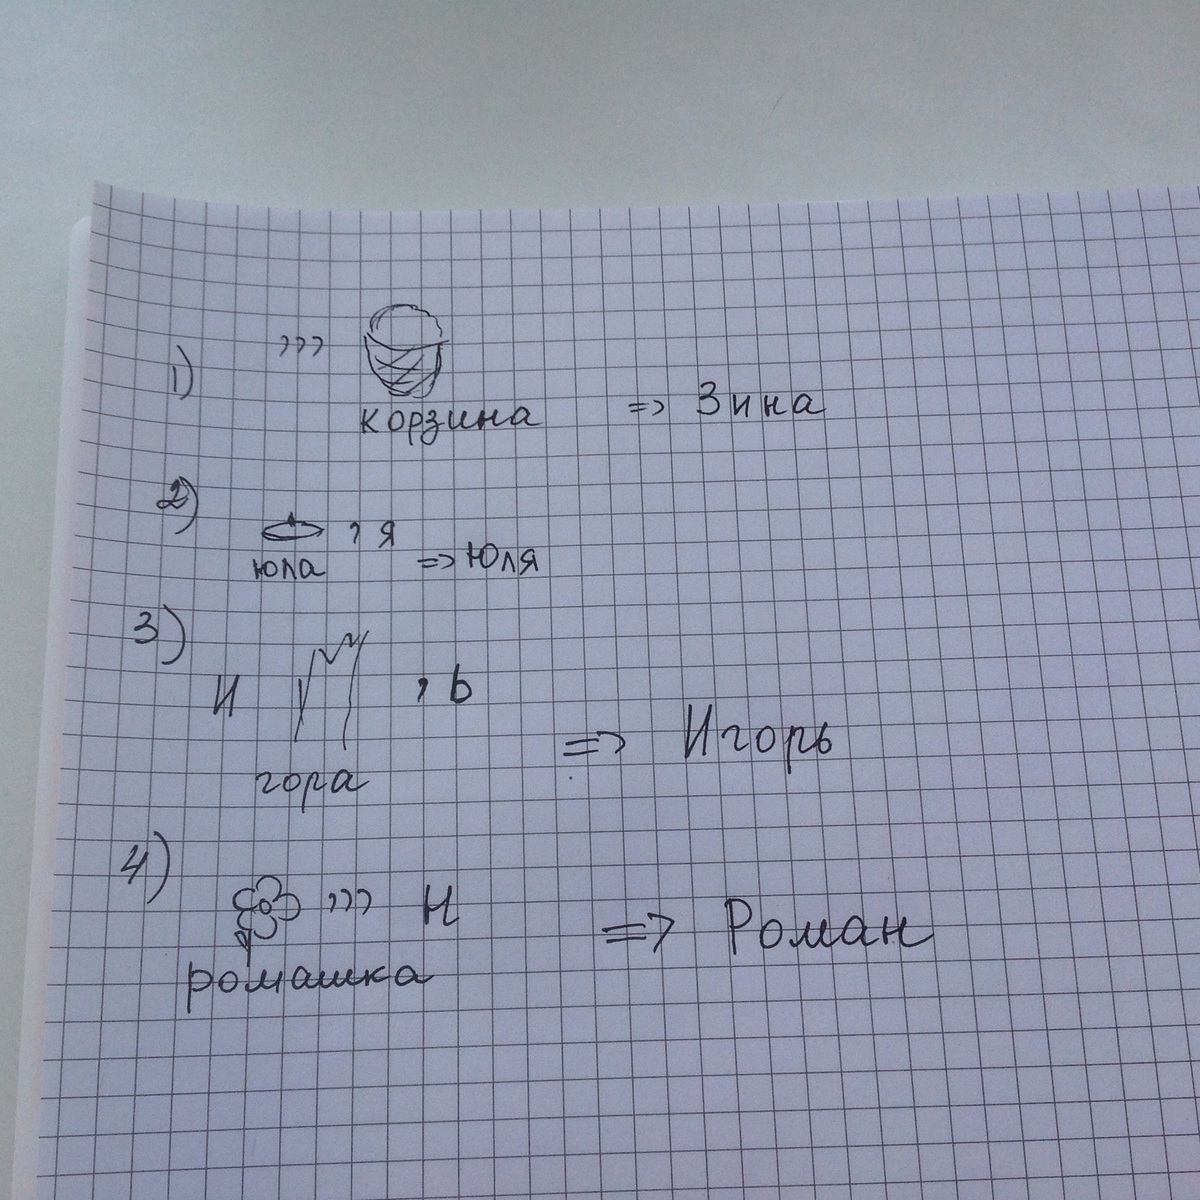 1) ,,, => Зина
корзина
2) , я => Юля
юла
3) И , ь => Игорь
гора
4) ,,, Н => Роман
ромашка